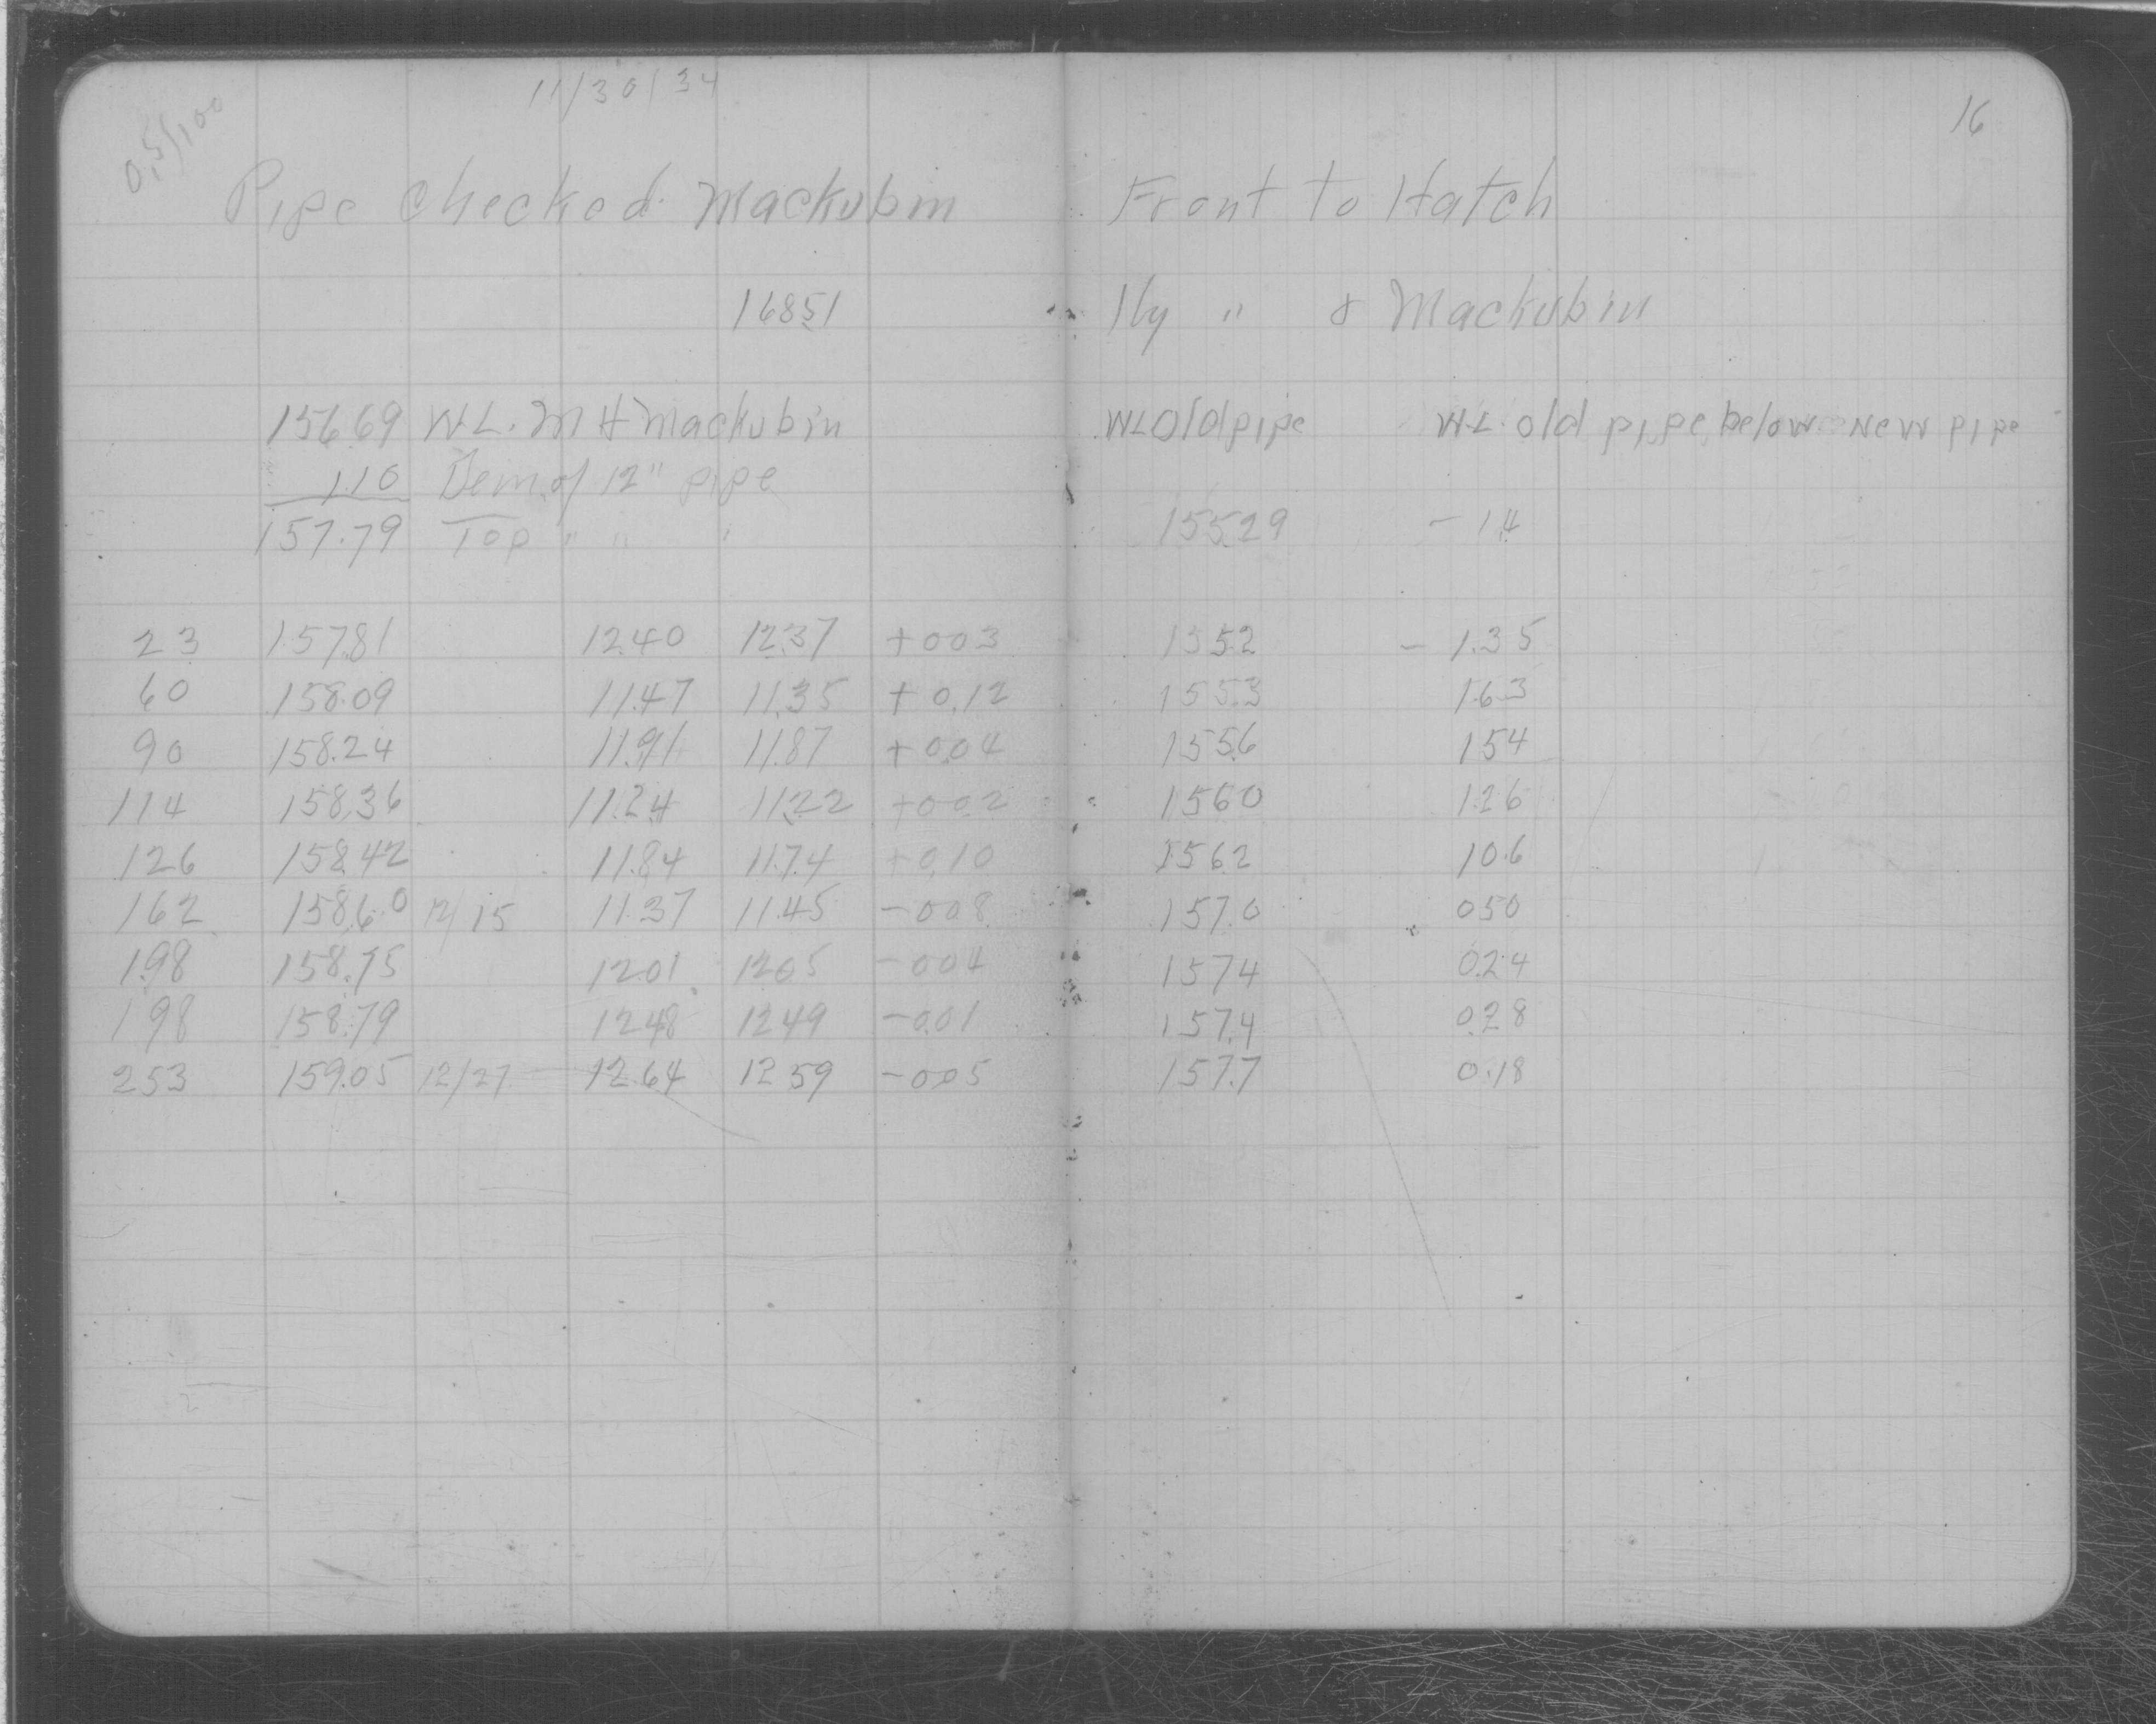 11/30/34
16
0.5/100
Pipe checked Mackubin Front to Hatch
168.51 Hy " & Mackubin
156.69 W.L. M H Mackubin WL Old pipe W.L. old pipe below New pipe
1.10 of 12" pipe
157.79 Top " " " 155.29 - 1.4
23 157.81 12.40 12.37 +0.03 155.2 - 1.35
60 158.09 11.47 11.35 + 0.12 155.3 1.63
90 158.24 11.91 11.87 + 0.04 155.6 1.54
114 158.36 11.24 11.22 +0.02 156.0 1.26
126 158.42 11.84 11.74 +0.10 156.2 10.6
162 158.60 12/15 11.37 11.45 -0.08 157.0 0.50
198 158.75 12.01 12.05 -0.04 157.4 0.24
198 158.79 12.48 12.49 -0.01 157.4 0.28
253 159.05 12/27 12.64 12.59 -0.05 157.7 0.18